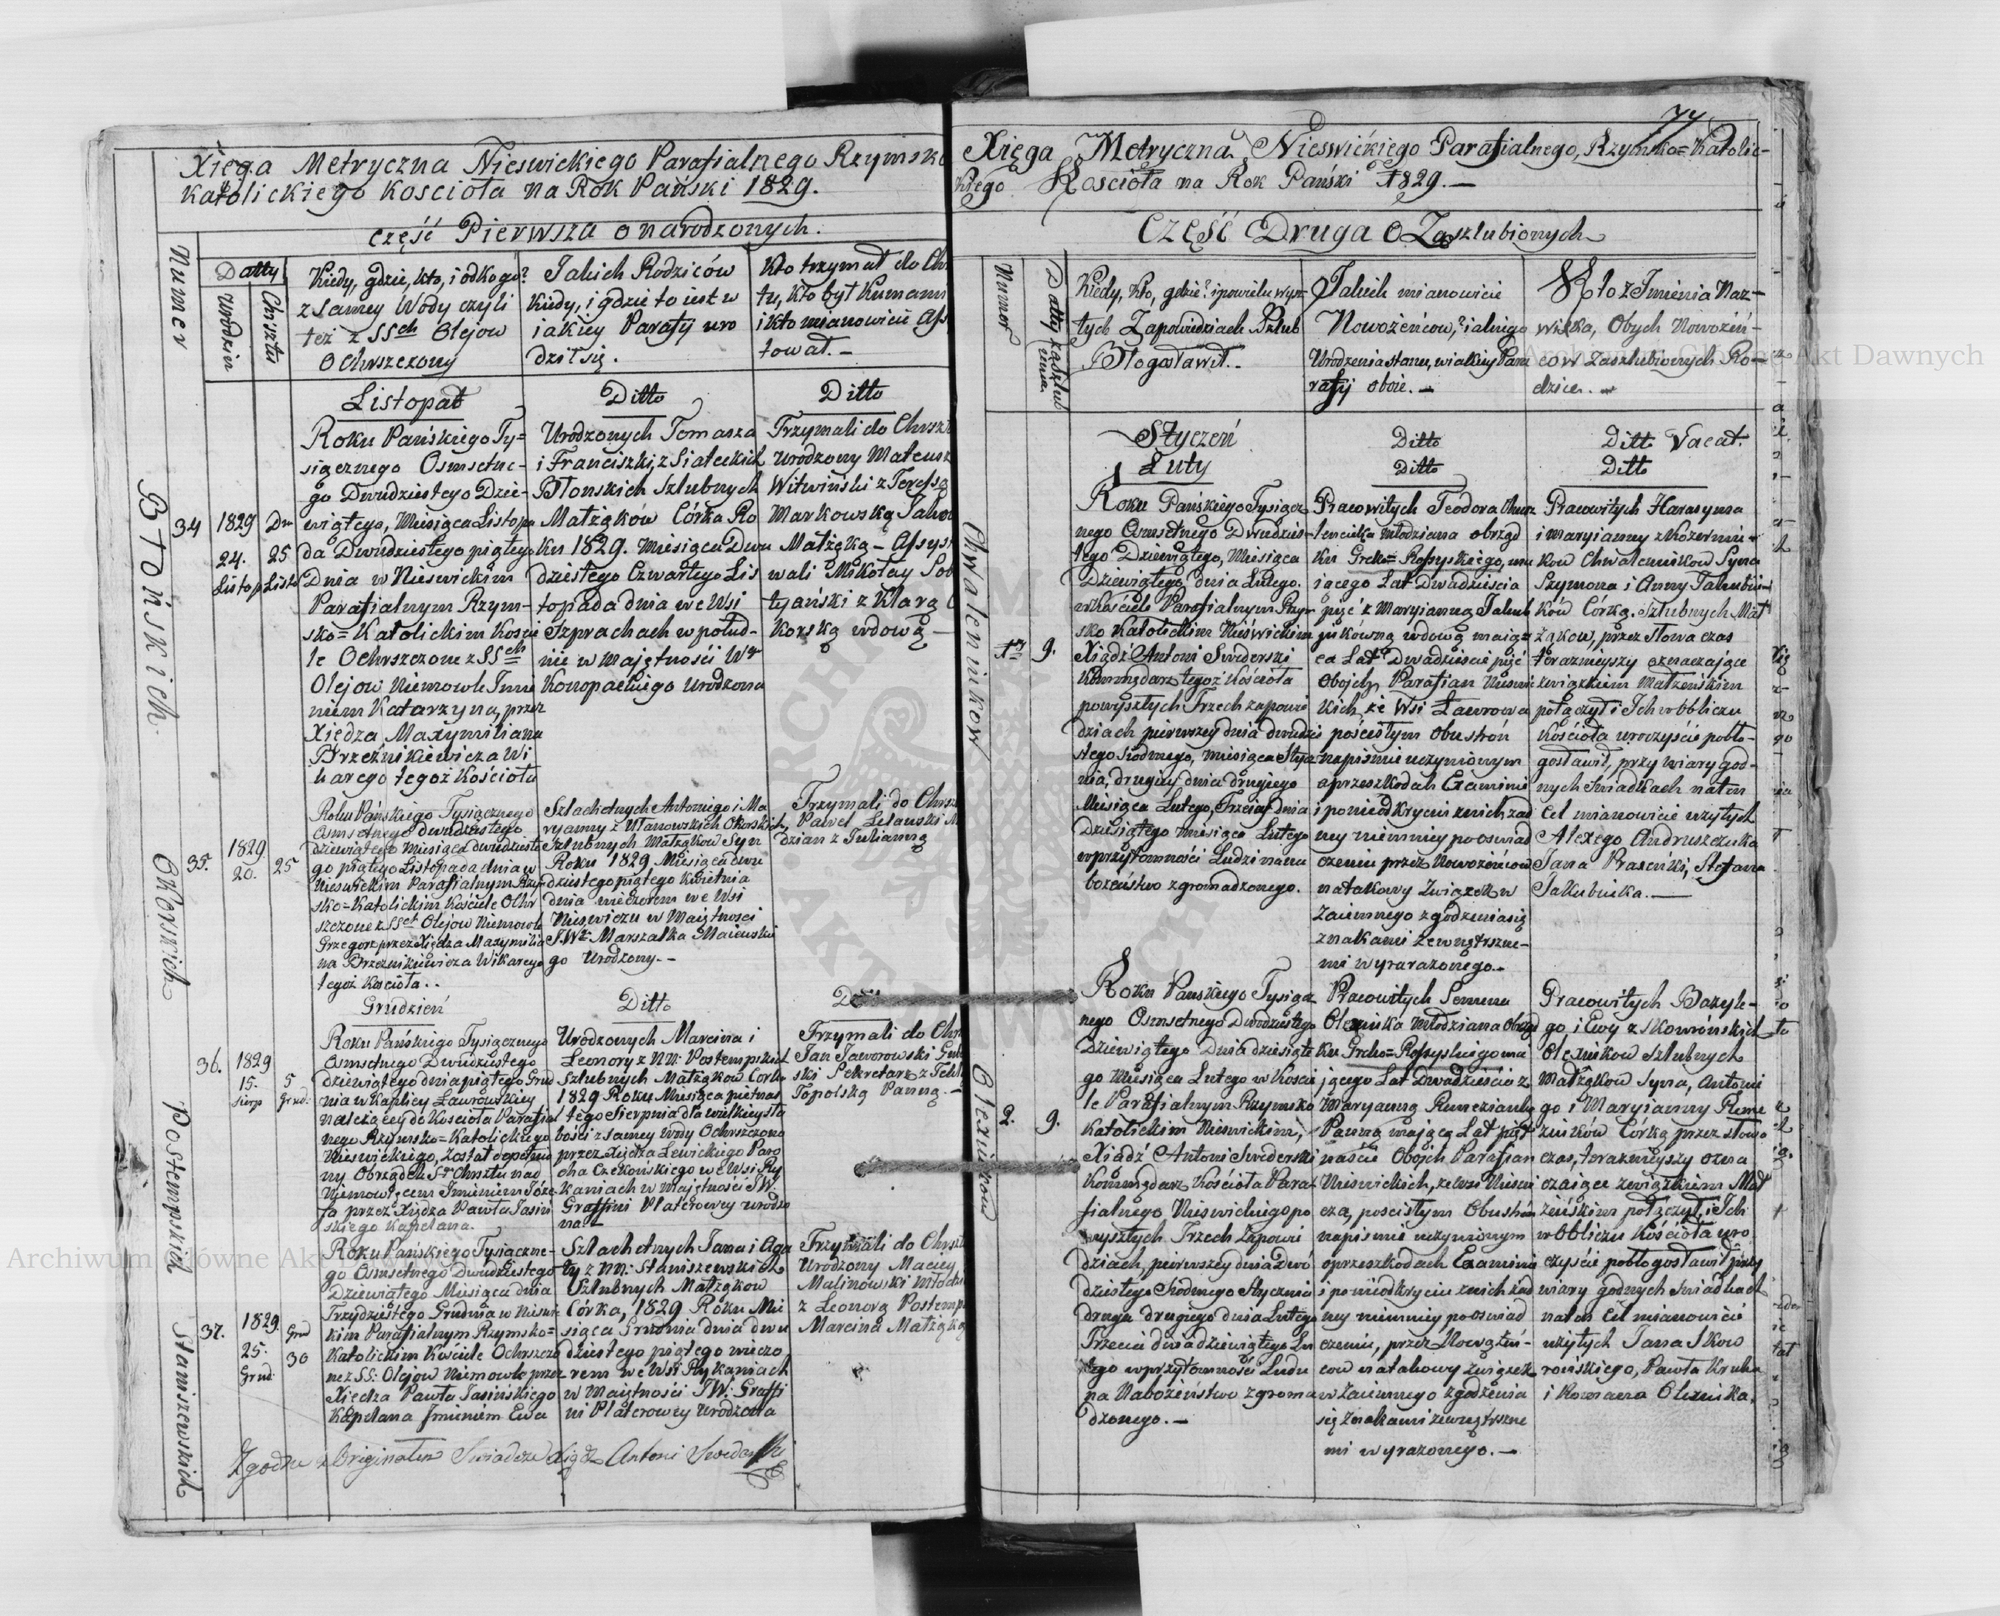 Xięga Metryczna Nieswickiego Parafialnego Rzymsko
Katolickiego Kościoła na Rok Pański 1829.
Część Pierwsza o narodzonych.
Numer
Datty
Urodzin
Chrsztu
Kiedy, gdzie, kto, i od kogo?
z Samey Wody czyli
też z SSch Olejow
Ochrszczony
Jakich Rodziców
Kiedy, i gdzie to iest w
jakiey Parafij uro
dził się.
Kto trzymał do Chr
tu, kto był Kumami
i kto mianowicie Assy
tował.
Listopad
Ditto
Ditto
Błońskich
34
1829
24.
Listop
Dn
25
Listo
Roku Pańskiego Ty=
siącznego Osmsetne-
go Dwudziestego Dzie-
wiątego, Miesiąca Listopa
da Dwudziestego piątego
Dnia w Nieswickim
Parafialnym Rzym-
sko=Katolickim Kościo
le Ochrszczone z SSch
Olejow Niemowle Imie
niem Katarzyna, przez
Xiędza Maxymiliana
Brzeźnikiewicza Wi
karego tegoż Kościoła
Urodzonych Tomasza
i Franciszki, z Siateckich
Błonskich Szlubnych
Małżąków Córka Ro
ku 1829. Miesiąca Dwu
dziestego Czwartego Lis
topada dnia we Wsi
Szprachach w połud-
nie w majętności Wr
Konopackiego urodzona
Trzymali do Chrszt
urodzony Mateusz
Witwiński z Teressą
Markowską
Małżąką - Assys
wali Mikołay Sob
tyański z Klarą
korską wdową
Okorskich
35.
1829
20.
25
Roku Pańskiego Tysiącznego
Osmsetnego dwudziestego
dziewiątego Miesiąca dwudzieste
go piątego Listopada dnia w
Nieswickim Parafialnym Rzym
sko=Katolickim Kościele Ochr
szczone z SSch Olejow Niemowle
Grzegorz przez Xiędza Maxymilia
na Brzeznikiewicza Wikarego
tegoż Kościoła..
Szlachetnych Antoniego i Ma
ryanny z Ułanowskich Okorskich,
Szlubnych Małżąkow Syn
Roku 1829 Miesiąca dwu
dziestego piątego Kwietnia
dnia wieczorem we Wsi
Nieswiczu w Maiętnosci
J.Wr. Marszałka Maiewski
go Urodzony.-
Trzymali do Chrsz
Paweł Lisauski
dzian z Julianną
Grudzień
Ditto
Postempskich
36.
1829
15.
Sierp
5
Grud.
Roku Pańskiego Tysiącznego
Osmsetnego Dwudziestego
dziewiątego dnia piątego Grud
nia w Kaplicy Ławrowskiey
należącey do Kościoła Parafial
nego Rzymsko=Katolickiego
Nieswickiego, został dopełnio
ny Obrządek St Chrsztu nad
Niemowlęcem Imieniem Józe
fa przez Xiędza Pawła Jasiń
skiego Kapelana.
Urodzonych Marcina i
Leonory z NN: Postempskich
Szlubnych Małżąkow Corka
1829 Roku Miesiąca pietnas
tego Sierpnia dla wielkiey sła
bości z Samey Wody Ochrszczona
przez Xiędza Lewickiego Paro
cha Czekońskiego we Wsi Ry
kaniach w majętności JW.
Graffini Platerowey urodzo
na
Trzymali do Chr
Jan Jaworowski
ski Sekretarz z
Topolską Panną.
Staniszewskich
37.
1829.
25.
Grud
Grud
30
Roku Pańskiego Tysiączne-
go Osmsetnego Dwudziestego
Dziewiątego Miesiąca dnia
Trzydziestego Grudnia w Nieswic
kim Parafialnym Rzymsko=
Katolickim Kościele Ochrszczo
ne z SS: Olejow Niemowle przez
Xiędza Pawła Jasińskiego
Kapelana Imieniem Ewa
Szlachetnych Jana i Aga
ty z NN: Staniszewskich
Szlubnych Małżąkow
Córka, 1829 Roku Mie
siąca Grudnia dnia dwu
dziestego piątego wieczo
rem we Wsi Rykaniach
w Maiętności JW: Graffi
ni Platerowey urodzona
Trzymali do Chrszt
Urodzony Maciey
Malinowski
z Leonorą Postemp
Marcina Małżąką
Zgodne z Originałem Swiadcze Xiądz Antoni
74
Xięga Metryczna Nieswickiego Parafialnego, Rzymsko=Katolic-
kiego Kosciola na Rok Pański 1829.-
Część Druga o Zaszlubionych
Numer
Datty zaszlub
ienia
Kiedy, kto, gdzie? i po wielu wysz-
łych Zapowiedziach Szlub
Błogosławił.-
Jakich mianowicie
Nowożeńcow, i iakiego
Urodzenia stanu, wiakiey Pa
rafij oboie.-
Kto z Imienia Naz-
wiska, Obych Nowożeń-
cow Zaszlubionych Ro-
dzice.-
Styczeń
Ditto
Ditto Vacat.
Luty
Ditto
Ditto
Chwaleninkow
1r
9.
Roku Pańskiego Tysiącz
nego Osmsetnego Dwudzies-
tego Dziewiątego, Miesiąca
Dziewiątego dnia Lutego.
w Kościele Parafialnym Rzym
sko Katolickim Nieświckim
Xiądz Antoni Swiderski
Kommędarz tegoż Kościoła
po wyszłych Trzech zapowie
dziach pierwszey dnia dwudzie
stego siodmego, miesiąca Stycz
nia, drugiey dnia drugiego
Miesiąca Lutego, Trzeciey dnia
Dziewiątego miesiąca Lutego
w przytomności Ludzi na na
bożeństwo zgromadzonego.
Pracowitych Teodora
młodziana obrząd
ku Greko=Rossyskiego, ma
iącego Lat Dwadzieścia
pięć z Maryianną Jakub
jukówną wdową maiąc
ca Lat Dwadzieście pięć
Oboich Parafian Nieswi
ckich, ze Wsi Ławrowa
po ścisłym Obustrón
na pismie uczynionym
o przeszkodach Examinie
i po nieodkryciu żadnych zad
ney niemniey po oswiad
czeniu przez Nowożeńców
na takowy Związek w
Zaiemnego zgodzenia się
znakami Zewnętrzne-
mi wyrarażonego.-
Pracowitych Harasyma
i Maryianny
kow Chwaleninkow Syna
Szymona i Anny Jakubiu
ków Córką. Szlubnych Mał
żąkow, przez słowa czas
terazniejszy oznaczające
związkiem Małżeńskim
połączył i Ich w obliczu
Kościoła uroczyście pobło-
gosławił, przy wiary god-
nych Swiadkach na ten
Cel mianowicie użytych
Alexego Andruszczuka
Jana, Stefana
Jakubiuka.
Olexiukow
2.
9.
Roku Pańskiego Tysiącz
nego Osmsetnego Dwudziestego
Dziewiątego Dnia dziewiąte
go Miesiąca Lutego w Kości
le Parafialnym Rzymsko
Katolickim Nieswickim,
Xiądz Antoni Swiderski
Kommędarz Kościoła Para
fialnego Nieswickiego po
wyszłych Trzech Zapowie
dziach, pierwszey dnia dwó
dziestego Siodmego Stycznia
druga drugiego dnia Lutego
Trzecia dnia dziewiątego Lu
tego w przytomności Ludu
na Nabożeństwo zgroma
dzonego.-
Pracowitych Semena
Olexiuka Młodziana Obrząd
ku Greko=Rossyskiego ma
jącego Lat Dwadzieścia z
Maryanną
Panną mającą Lat pięt
naście Obojch Parafian
Nieswickich, ze Wsi Nieswi
cza, po ścisłym Obustrón
na pismie uczynionym
o przeszkodach Examinie
i po nieodkryciu znich żad
ney niemniey po oswiad
czeniu, przez Nowożeń-
cow na takowy związek
w Zaiemnego zgodzenia
się Znakami zewnętrzne
mi wyrażonego.-
Pracowitych Bazyle-
go i Ewy z Skowrońskich
Olexiukow Szlubnych
Małżąkow Syna, Antonie
go i Maryianny Reme
ziuków Córką przez słowo
czas, terazniejszy ozna
czaiące związkiem Mał
żeńskim połączył, i Ich
w obliczu Kościoła uro
czyście pobłogosławił przy
wiary godnych Swiadkach
na ten Cel mianowicie
użytych Jana Skow
rońskiego, Pawła Kruka
i Romana Olexiuka.
Archiwum Główne Akt Dawnych
Archiwum Główne Akt Dawnych